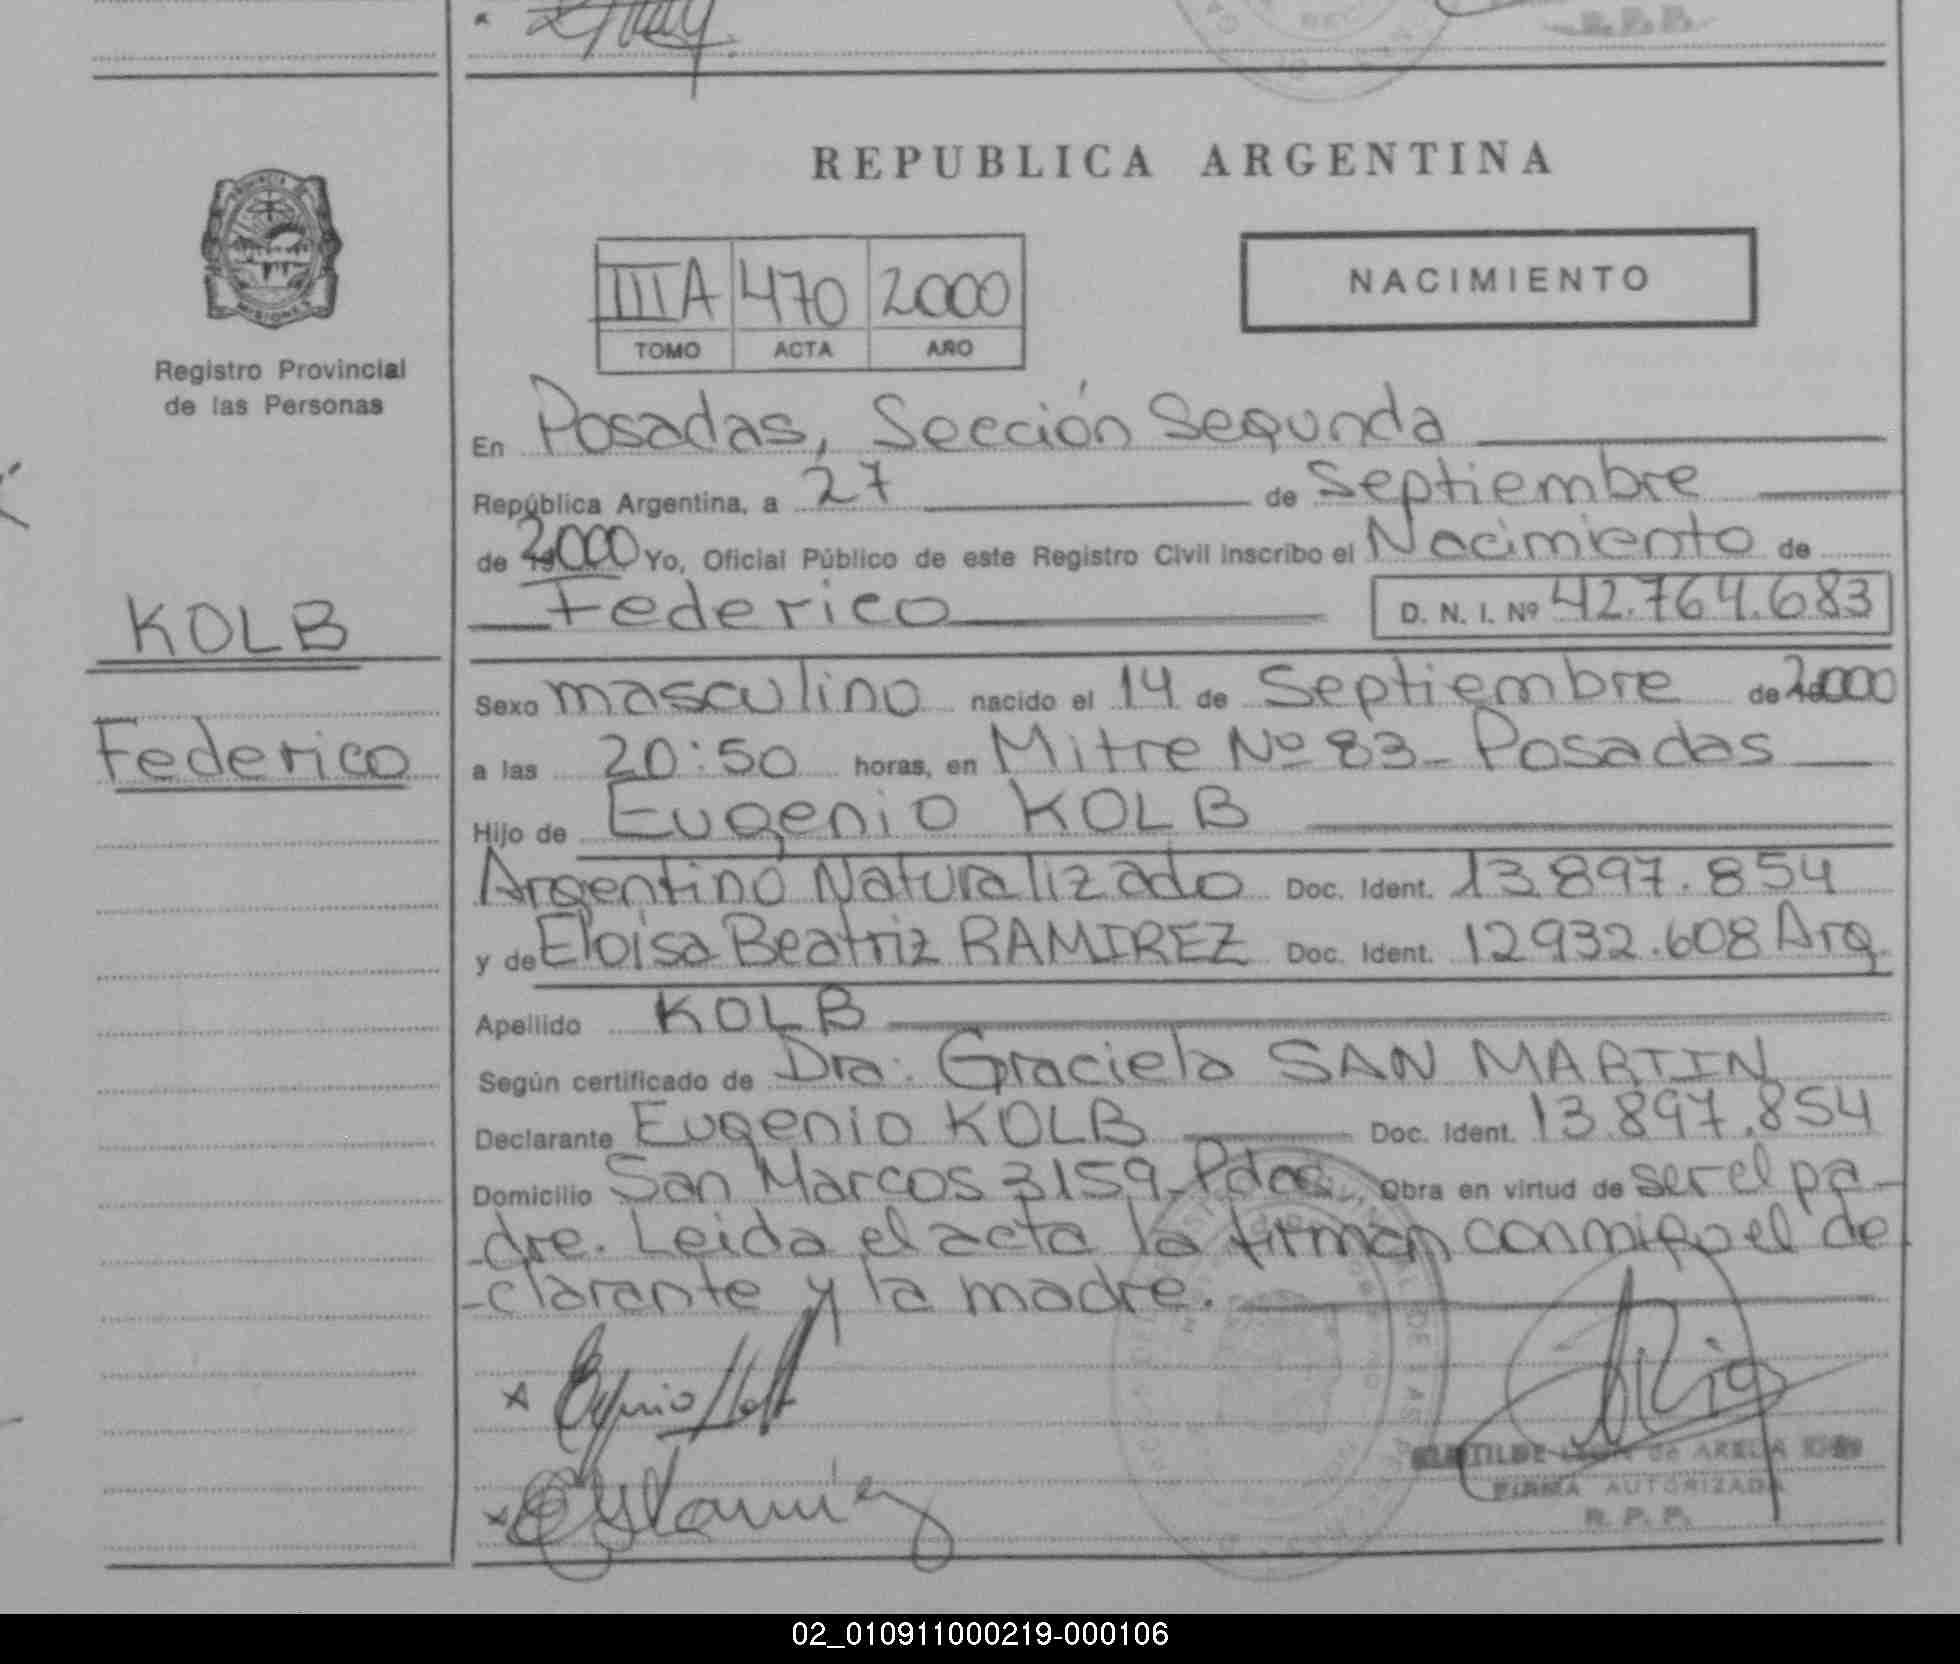 REPUBLICA ARGENTINA
PROVINCIA DE MISIONES
Registro Provincial
de las Personas
IIIA 470 2000
TOMO ACTA AÑO
NACIMIENTO
En Posadas, Sección Segunda
República Argentina, a 27 de Septiembre
de 2000 Yo, Oficial Público de este Registro Civil inscribo el Nacimiento de
Federico D. N. I. Nº 42.764.683
KOLB
Federico
Sexo masculino nacido el 14 de Septiembre de 2000
a las 20:50 horas, en Mitre Nº 83 - Posadas
Hijo de Eugenio KOLB
Argentino Naturalizado Doc. Ident. 13.897.854
y de Eloisa Beatriz RAMIREZ Doc. Ident. 12932.608 Arg.
Apellido KOLB
Según certificado de Dra. Graciela SAN MARTIN
Declarante Eugenio KOLB Doc. Ident. 13.897.854
Domicilio San Marcos 3159 - Pdas. Obra en virtud de ser el pa-
-dre. Leida el acta la firman conmigo el de
-clarante y la madre.
FIRMA AUTORIZADA
R. P. P.
02_010911000219-000106